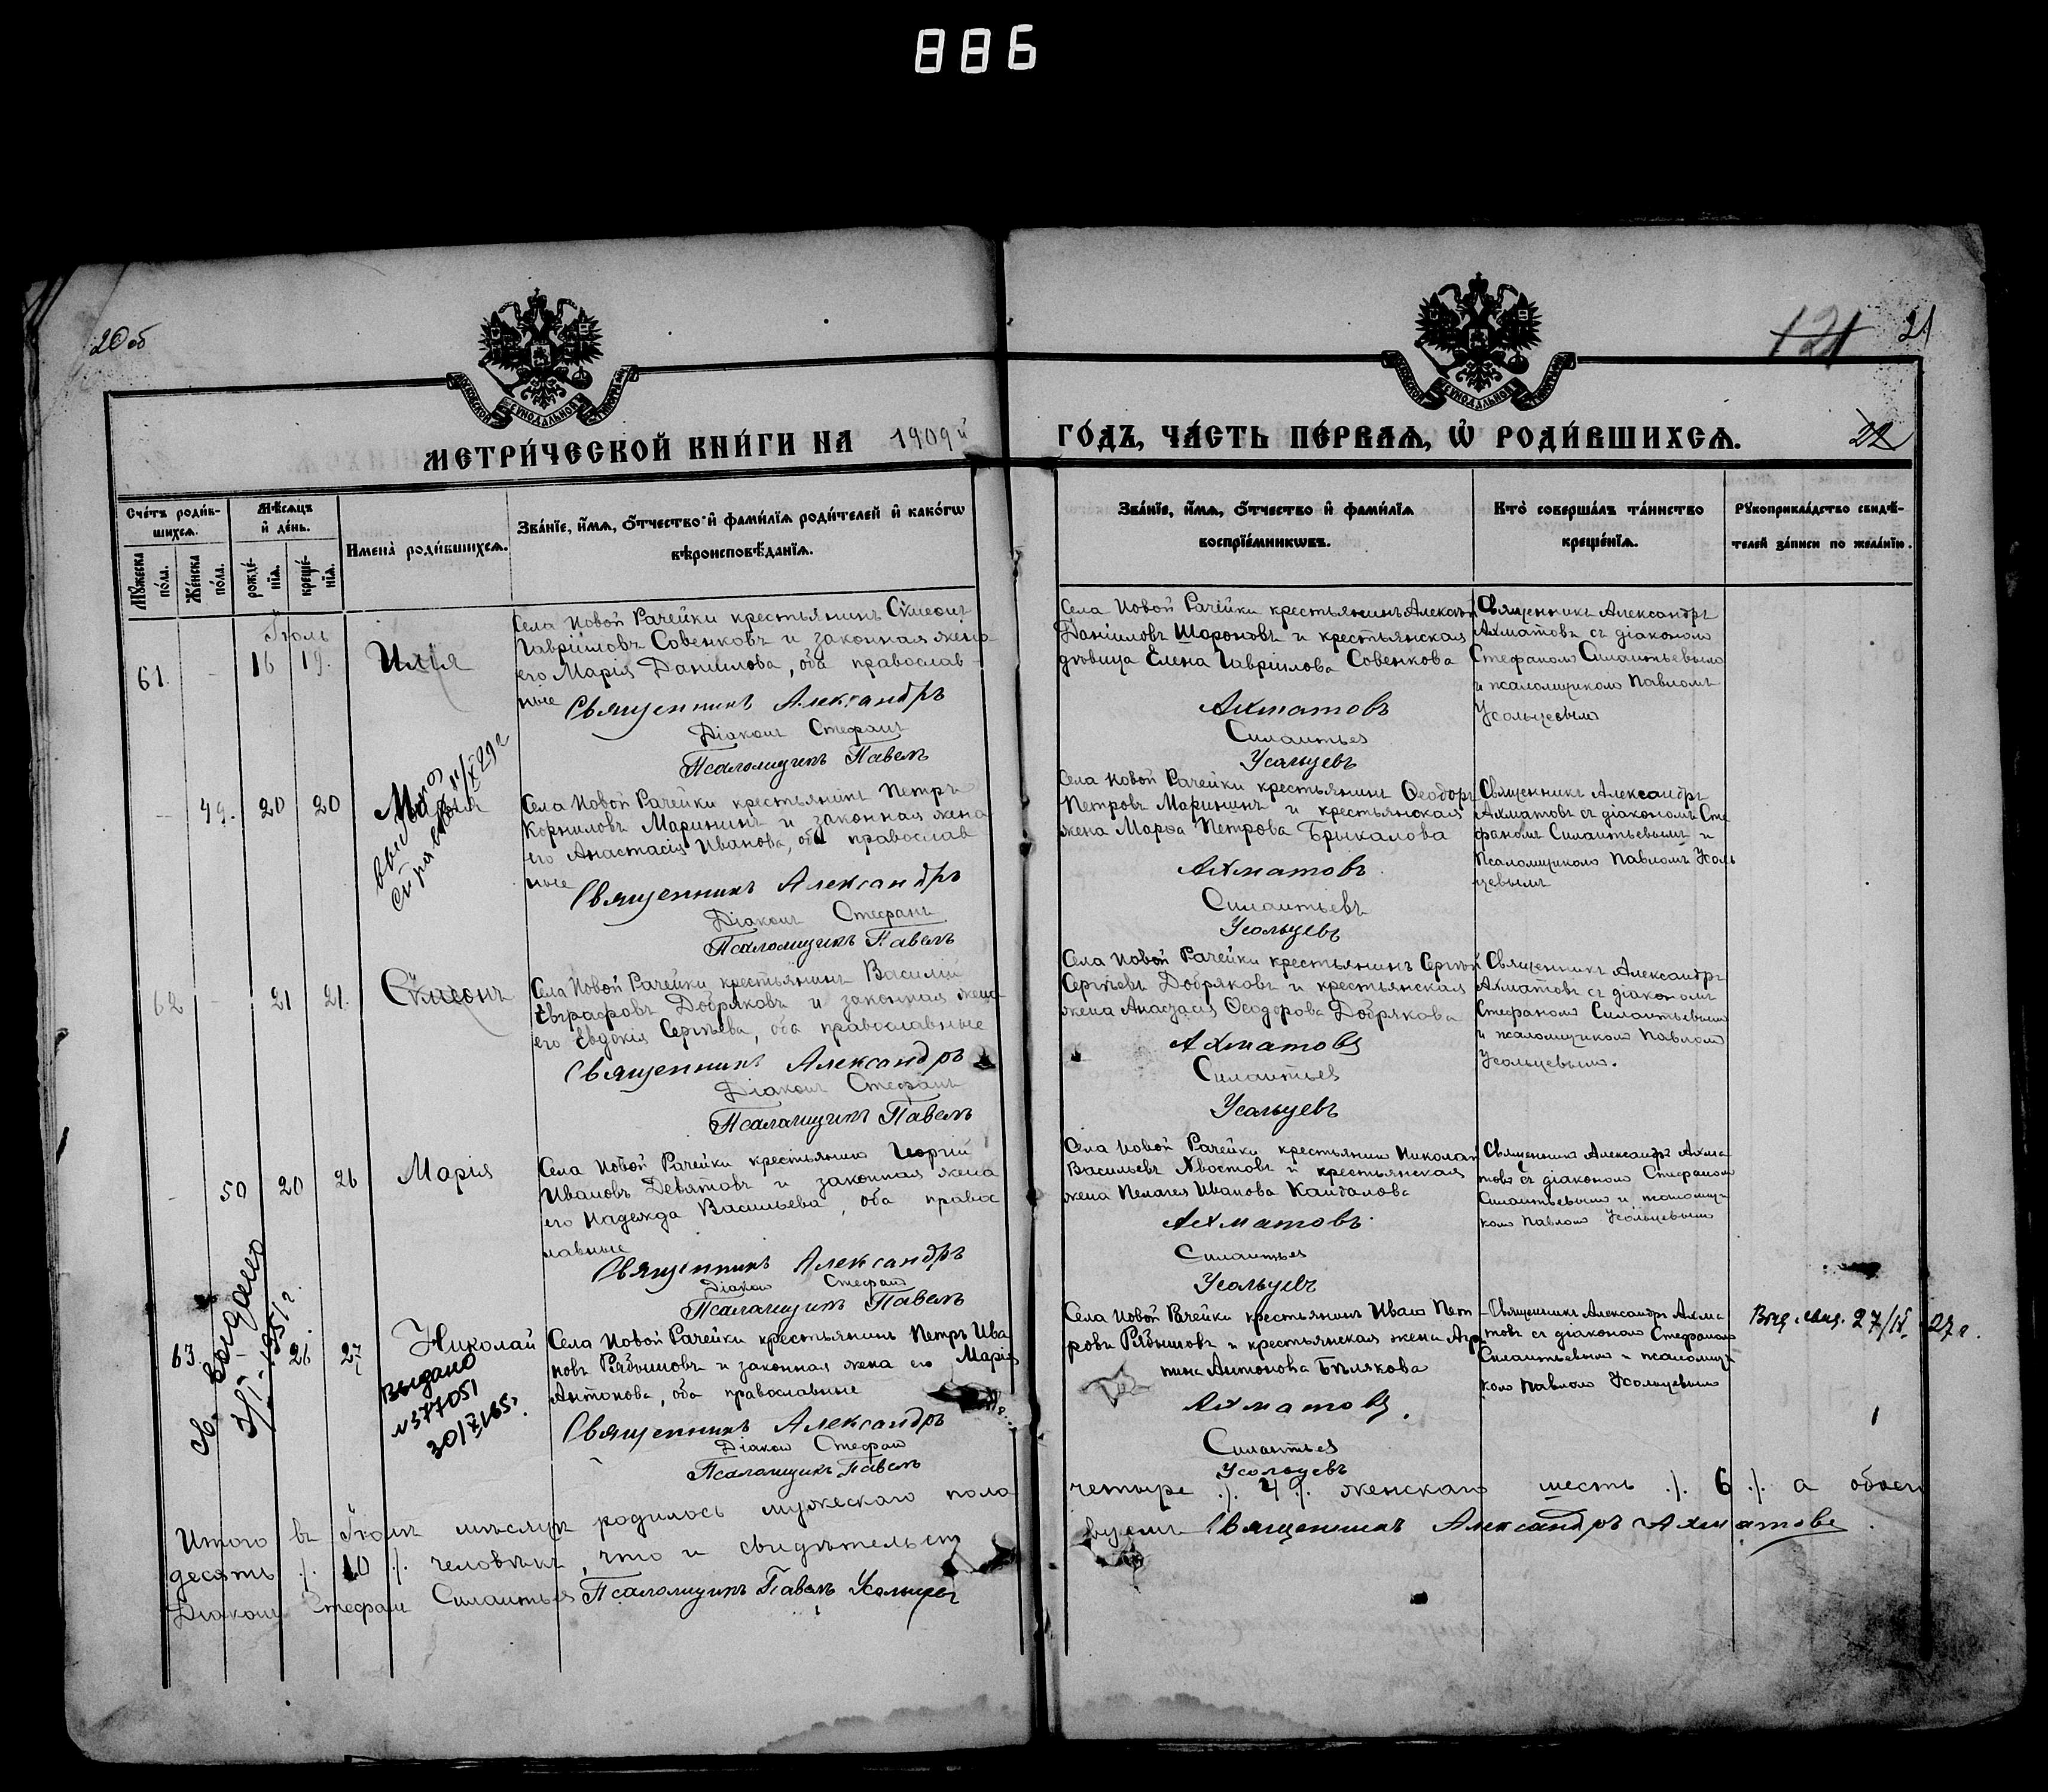 886
20 об
121 21
МЕТРИ́ЧЕСКОЙ КНИ́ГИ НА 1909й ГО́ДЪ, ЧА́СТЬ ПЕ́РВАѦ, Ѡ҆ РОДИ́ВШИХСѦ.
22
Сче́тъ роди́в-
шихсѧ.
Мѣ́сѧцъ
и҆ де́нь.
Имена̀ роди́вшихсѧ.
Зва́нїе, и҆́мѧ, о҆́тчество и҆ фами́лїѧ роди́телей и҆ како́гѡ
вѣроисповѣ́данїѧ.
Зва́нїе, и҆́мѧ, о҆́тчество и҆ фами́лїѧ
воспрїе́мникѡвъ.
Кто̀ соверша́лъ та́инство
креще́нїѧ.
Рꙋкоприкла́дство свидѣ́-
телей за́писи по жела́нїю.
Мꙋ́жеска
по́ла.
Же́нска
по́ла.
рожде́-
нїѧ.
креще́-
нїѧ.
Іюль
61. - 16 19. Илія
Села Новой Рачейки крестьянинъ Сѵмеонъ
Гавріиловъ Совенковъ и законная жена
его Марія Даниилова, оба православ-
ные
Священникъ Александръ
Діаконъ Стефанъ
Псаломщикъ Павелъ
Села Новой Рачейки крестьянинъ Алексѣй
Данииловъ Шароновъ и крестьянская
дѣвица Елена Гавріилова Совенкова
Ахматовъ
Силантьев
Усольцевъ
Священникъ Александръ
Ахматовъ съ діакономъ
Стефаномъ Силантьевымъ
и псаломщикомъ Павломъ
Усольцевымъ
- 49. 20 20
выдана
справка 11/IX 29 г
Села Новой Рачейки крестьянинъ Петръ
Корниловъ Марининъ и законная жена
его Анастасія Иванова, оба православ
ные
Священникъ Александръ
Діаконъ Стефанъ
Псаломщикъ Павелъ
Села Новой Рачейки крестьянинъ Ѳеодоръ
Петровъ Марининъ и крестьянская
жена Марѳа Петрова Брыкалова
Ахматовъ
Силантьевъ
Усольцевъ
Священникъ Александръ
Ахматовъ съ діакономъ Сте
фаномъ Силантьевымъ и
Псаломщикомъ Павломъ Усоль
цевымъ
62 - 21 21. Сѵмеонъ
Села Новой Рачейки крестьянинъ Василій
Евграфовъ Добряковъ и законная жена
его Евдокія Сергѣева, оба православные
Священникъ Александръ
Діаконъ Стефанъ
Псаломщикъ Павелъ
Села Новой Рачейки крестьянинъ Сергѣй
Сергѣевъ Добряковъ и крестьянская
жена Анастасія Ѳеодорова Добрякова
Ахматовъ
Силантьев
Усольцевъ
Священникъ Александръ
Ахматовъ съ діакономъ
Стефаномъ Силантьевымъ
и псаломщикомъ Павломъ
Усольцевымъ.
- 50 20 26 Марія
Села Новой Рачейки крестьянинъ Георгій
Ивановъ Девятовъ и законная жена
его Надежда Васильева, оба правос
лавные
Священникъ Александръ
Діаконъ Стефанъ
Псаломщикъ Павелъ
Села Новой Рачейки крестьянинъ Николай
Васильевъ Хвостовъ и крестьянская
жена Пелагея Иванова Кайдалова
Ахматовъ
Силантьев
Усольцевъ
Священникъ Александръ Ахма
товъ съ діакономъ Стефаномъ
Силантьевымъ и псаломщи
комъ Павломъ Усольцевымъ
63. - 26. 27 Николай
Св- Выдано
Выдано
№377051
30/XI 65г.
Села Новой Рачейки крестьянинъ Петръ Ива
новъ Рябышовъ и законная жена его Марія
Антонова, оба православные
Священникъ Александръ
Діаконъ Стефанъ
Псаломщикъ Павелъ
Села Новой Рачейки крестьянинъ Иванъ Пет
ровъ Рябышовъ и крестьянская жена Агрип
пина Антонова Бѣлякова
Ахматовъ.
Силантьев
Усольцевъ
Священникъ Александръ Ахма
товъ съ діакономъ Стефаномъ
Силантьевымъ и псаломщи
комъ Павломъ Усольцевымъ
27 г.
Итого въ Іюлѣ мѣсяцѣ родилось мужескаго пола четыре ./. 4 ./. женскаго шесть ./. 6 ./. а обоего
десять ./. 10 ./. человѣкъ, что и свидѣтельст вуемъ Священникъ Александръ Ахматовъ.
Діаконъ Стефанъ Силантьев Псаломщикъ Павелъ Усольцев